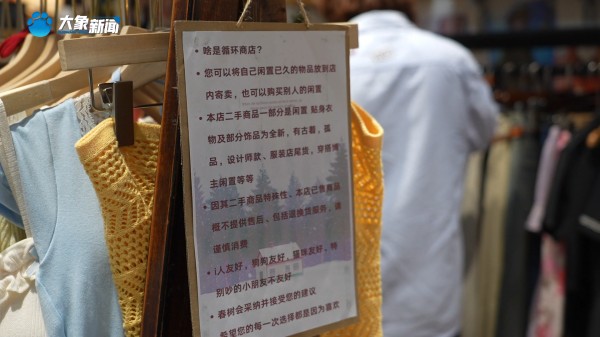 大象新闻
• 啥是循环商店？
• 您可以将自己闲置已久的物品放到店
内寄卖，也可以购买别人的闲置
• 本店二手商品一部分是闲置 贴身衣
物及部分饰品为全新，有古着，孤
品，设计师款、服装店尾货，穿搭博
主闲置等等
• 因其二手商品特殊性，本店已售商品
概不提供售后、包括退换货服务，请
谨慎消费
• i人友好，狗狗友好，猫咪友好，特
别吵的小朋友不友好
• 春树会采纳并接受您的建议
希望您的每一次选择都是因为喜欢